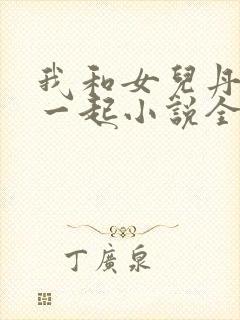 我和女兒丹
一起小説全
丁廣泉